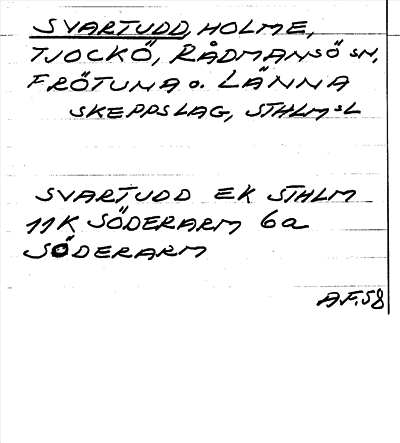 SVARTUDD, HOLME,
TJOCKÖ, RÅDMANSÖ SN,
FRÖTUNA o. LÄNNA
SKEPPSLAG, STHLMSL
SVARTUDD EK STHLM
11K SÖDERARM 6a
SÖDERARM
A.F.58